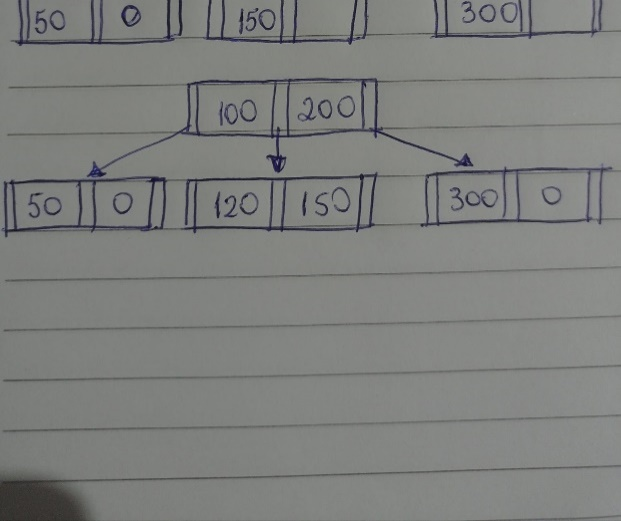 50 0 150 300
100 200
50 0 120 150 300 0